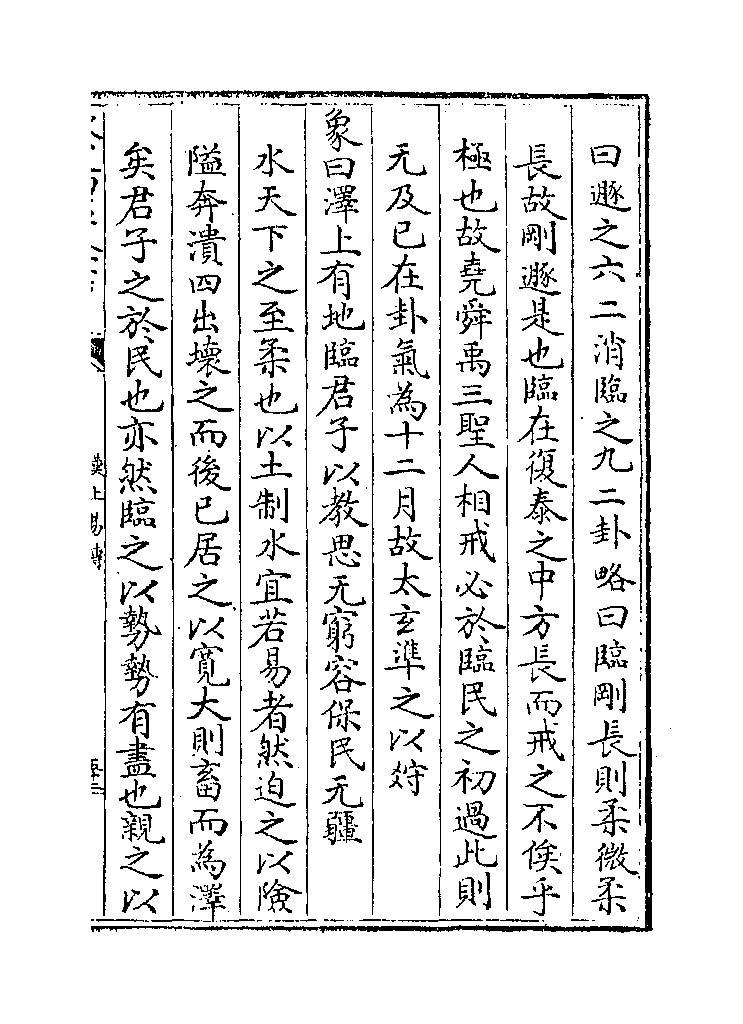 曰遯之六二消臨之九二卦略曰臨剛長則柔微柔
長故剛遯是也臨在復泰之中方長而戒之不俟乎
極也故堯舜禹三聖人相戒必於臨民之初過此則
无及已在卦氣為十二月故太玄準之以㝊
象曰澤上有地臨君子以教思无窮容保民无疆
水天下之至柔也以土制水宜若易者然迫之以險
隘奔潰四出壞之而後已居之以寬大則畜而為澤
矣君子之於民也亦然臨之以勢勢有盡也親之以
漢上易傳